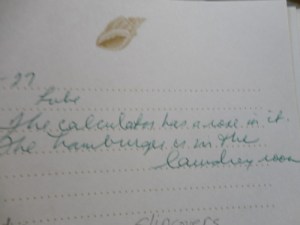 27
The calculator has a nose in it.
The hamburger is in the
laundry room